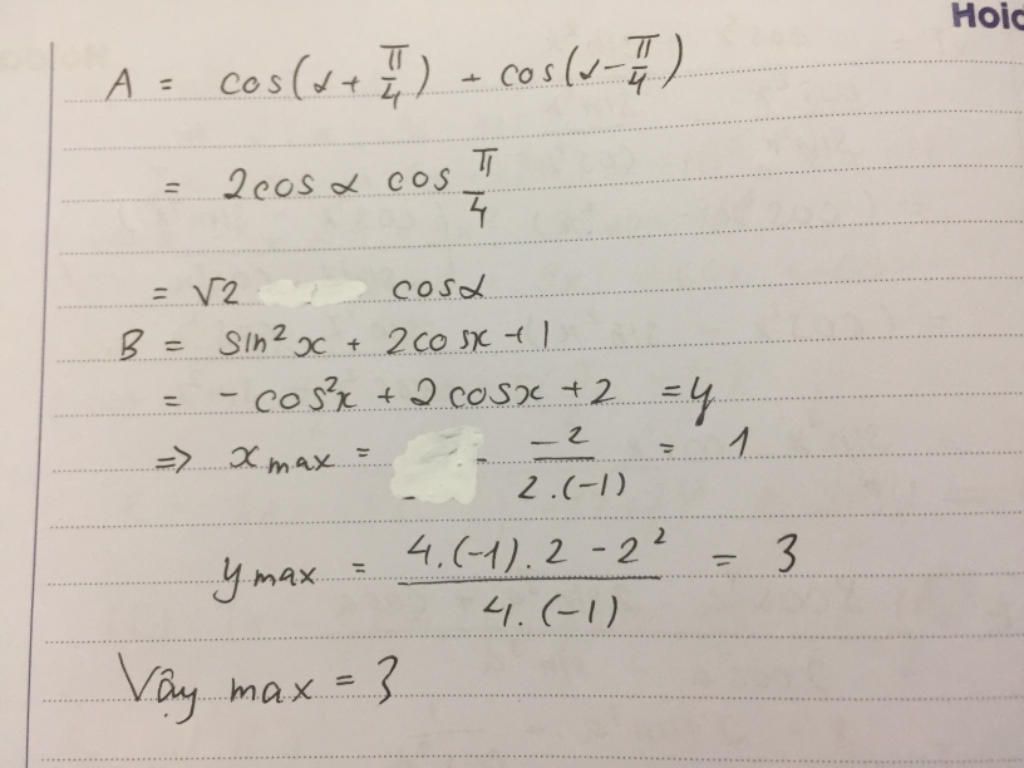 Hoid
A = cos(α + π/4) + cos(α - π/4)
= 2cosα cos π/4
= √2 cosα
B = sin²x + 2cosx + 1
= - cos²x + 2cosx + 2 = y
=> x max = - -2/2.(-1) = 1
y max = 4.(-1).2 - 2²/4.(-1) = 3
Vậy max = 3